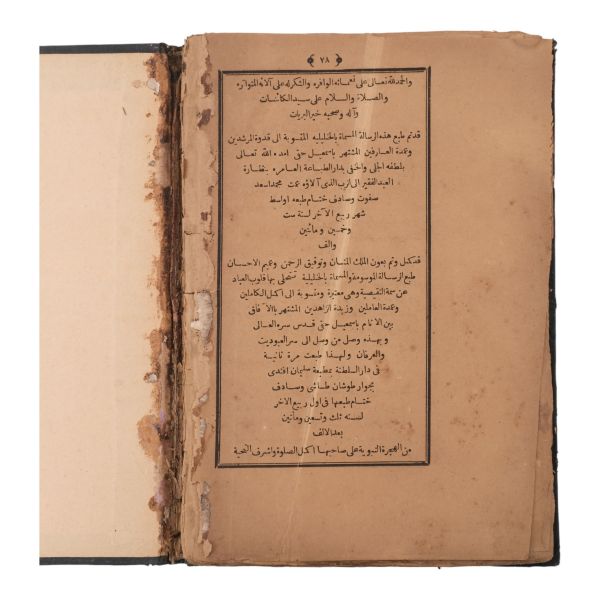 ٧٨
والحمدلله تعالى على نعمائه الوافره والشكرله على آلائه المتواره
والصلاة والسلام على سيد الكائنات
وآله وصحبه خير البريات
قدتم طبع هذه الرسالة المسماة بالخليليه المنسوبة الى قدوة المرشدين
وعمدة العارفين المشتهر باسمعيل حقى امده الله تعالى
بلطفه الجلى والخفى بدار الطباعة العامره بنظارة
العبد الفقير الى لرب الذى آلاؤه عمت محمد اسعد
صفوت وصادف ختام طبعه اواسط
شهر ربيع الآخر لسنة ست
وخمسين ومائتين
والف
قد كمل وتم بعون الملك المنان وتوفيق الرحمن وعميم الاحسان
طبع الرسالة الموسومة والمسماة بالخليلية تتحلى بها قلوب العباد
عن سمة النقيصية وهى معتبرة ومنسوبة الى اكمل الكاملين
وعمدة العاملين وزبدة الزاهدين المشتهر بالآفاق
بين الانام باسمعيل حقى قدس سره العالى
وبهذه وصل من وصل الى سر العبوديت
والعرفان ولهذا طبعت مرة ثانية
فى دار السلطنة بمطبعة سليمان افندى
بجوار طوشان طاشى وصادف
ختام طبعها فى اول ربيع الآخر
لسنه ثلث وتسعين ومأتين
بعد الالف
من الهجرة النبوية على صاحبها اكمل الصلوة واشرف التحية